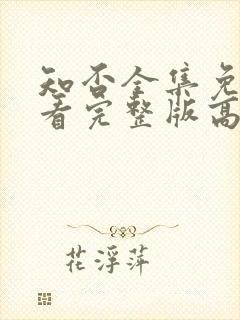 知否全集免
看完整版高
花浮萍